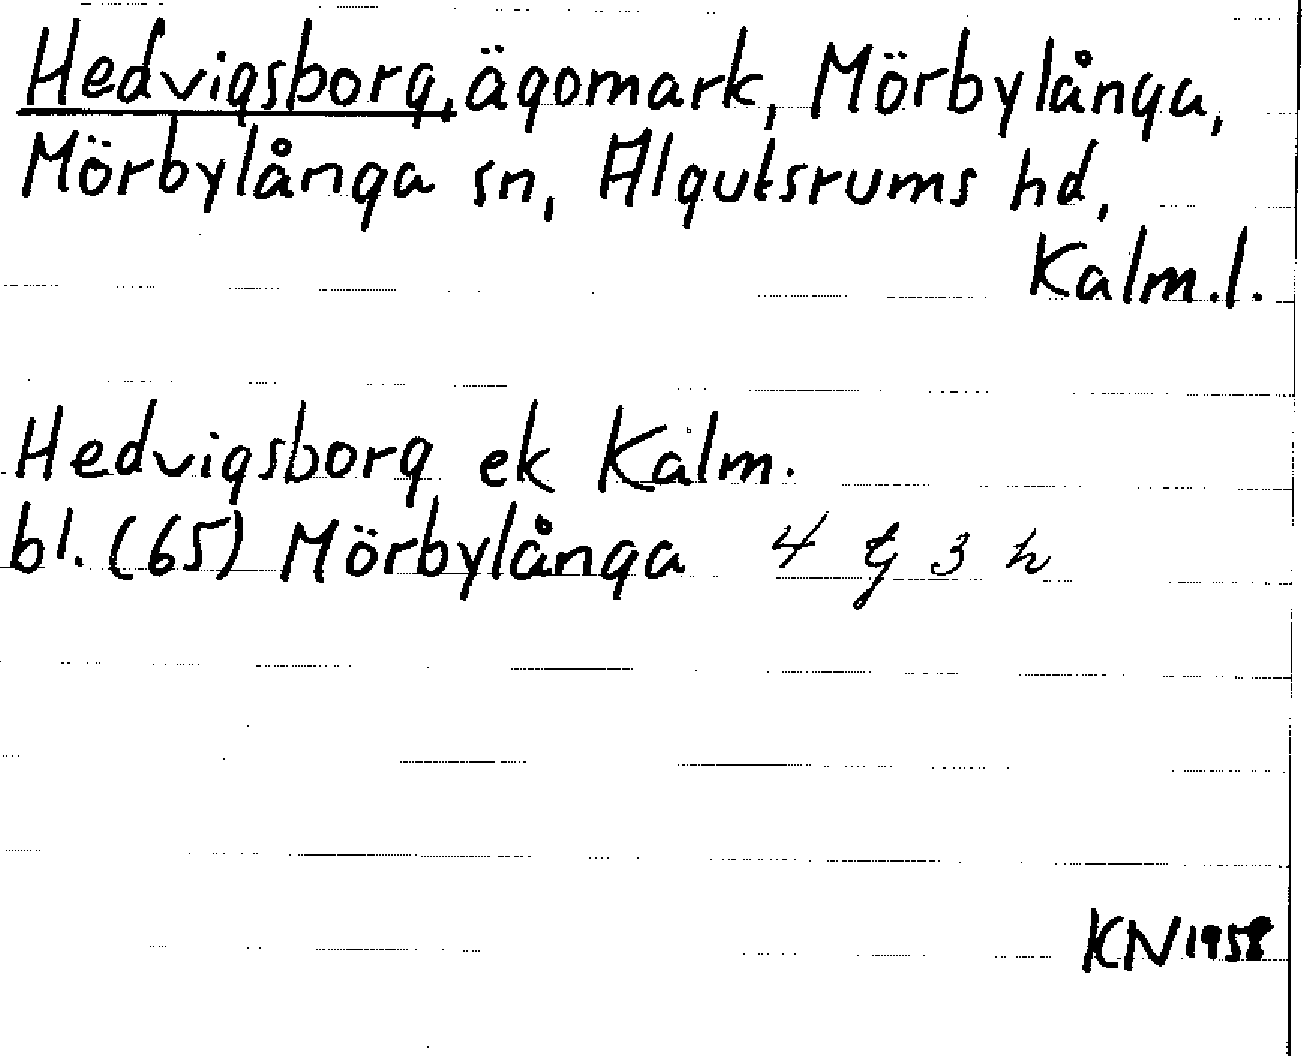 Hedvigsborg, ägomark, Mörbylånga,
Mörbylånga sn, Algutsrums hd,
Kalm.l.
Hedvigsborg ek Kalm.
bl. (65) Mörbylånga 4 G 3 h
KN 1958